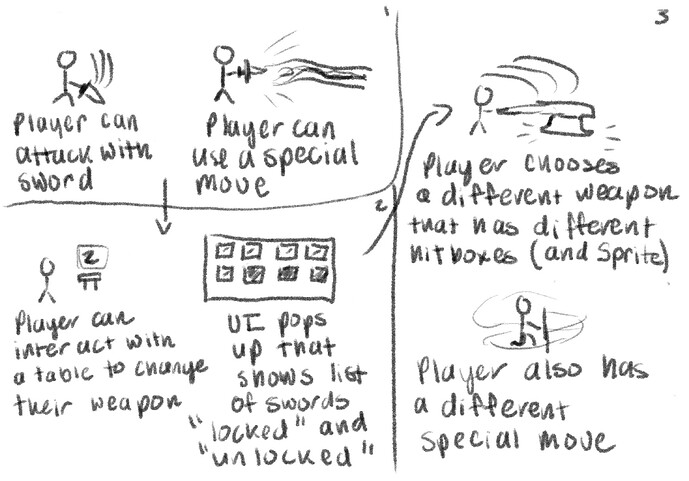 1
Player can
attack with
sword
Player can
use a special
move
2
Z
Player can
interact with
a table to change
their weapon
UI pops
up that
shows list
of swords
"locked" and
"unlocked"
3
Player chooses
a different weapon
that has different
hitboxes (and Sprite)
Player also has
a different
special move